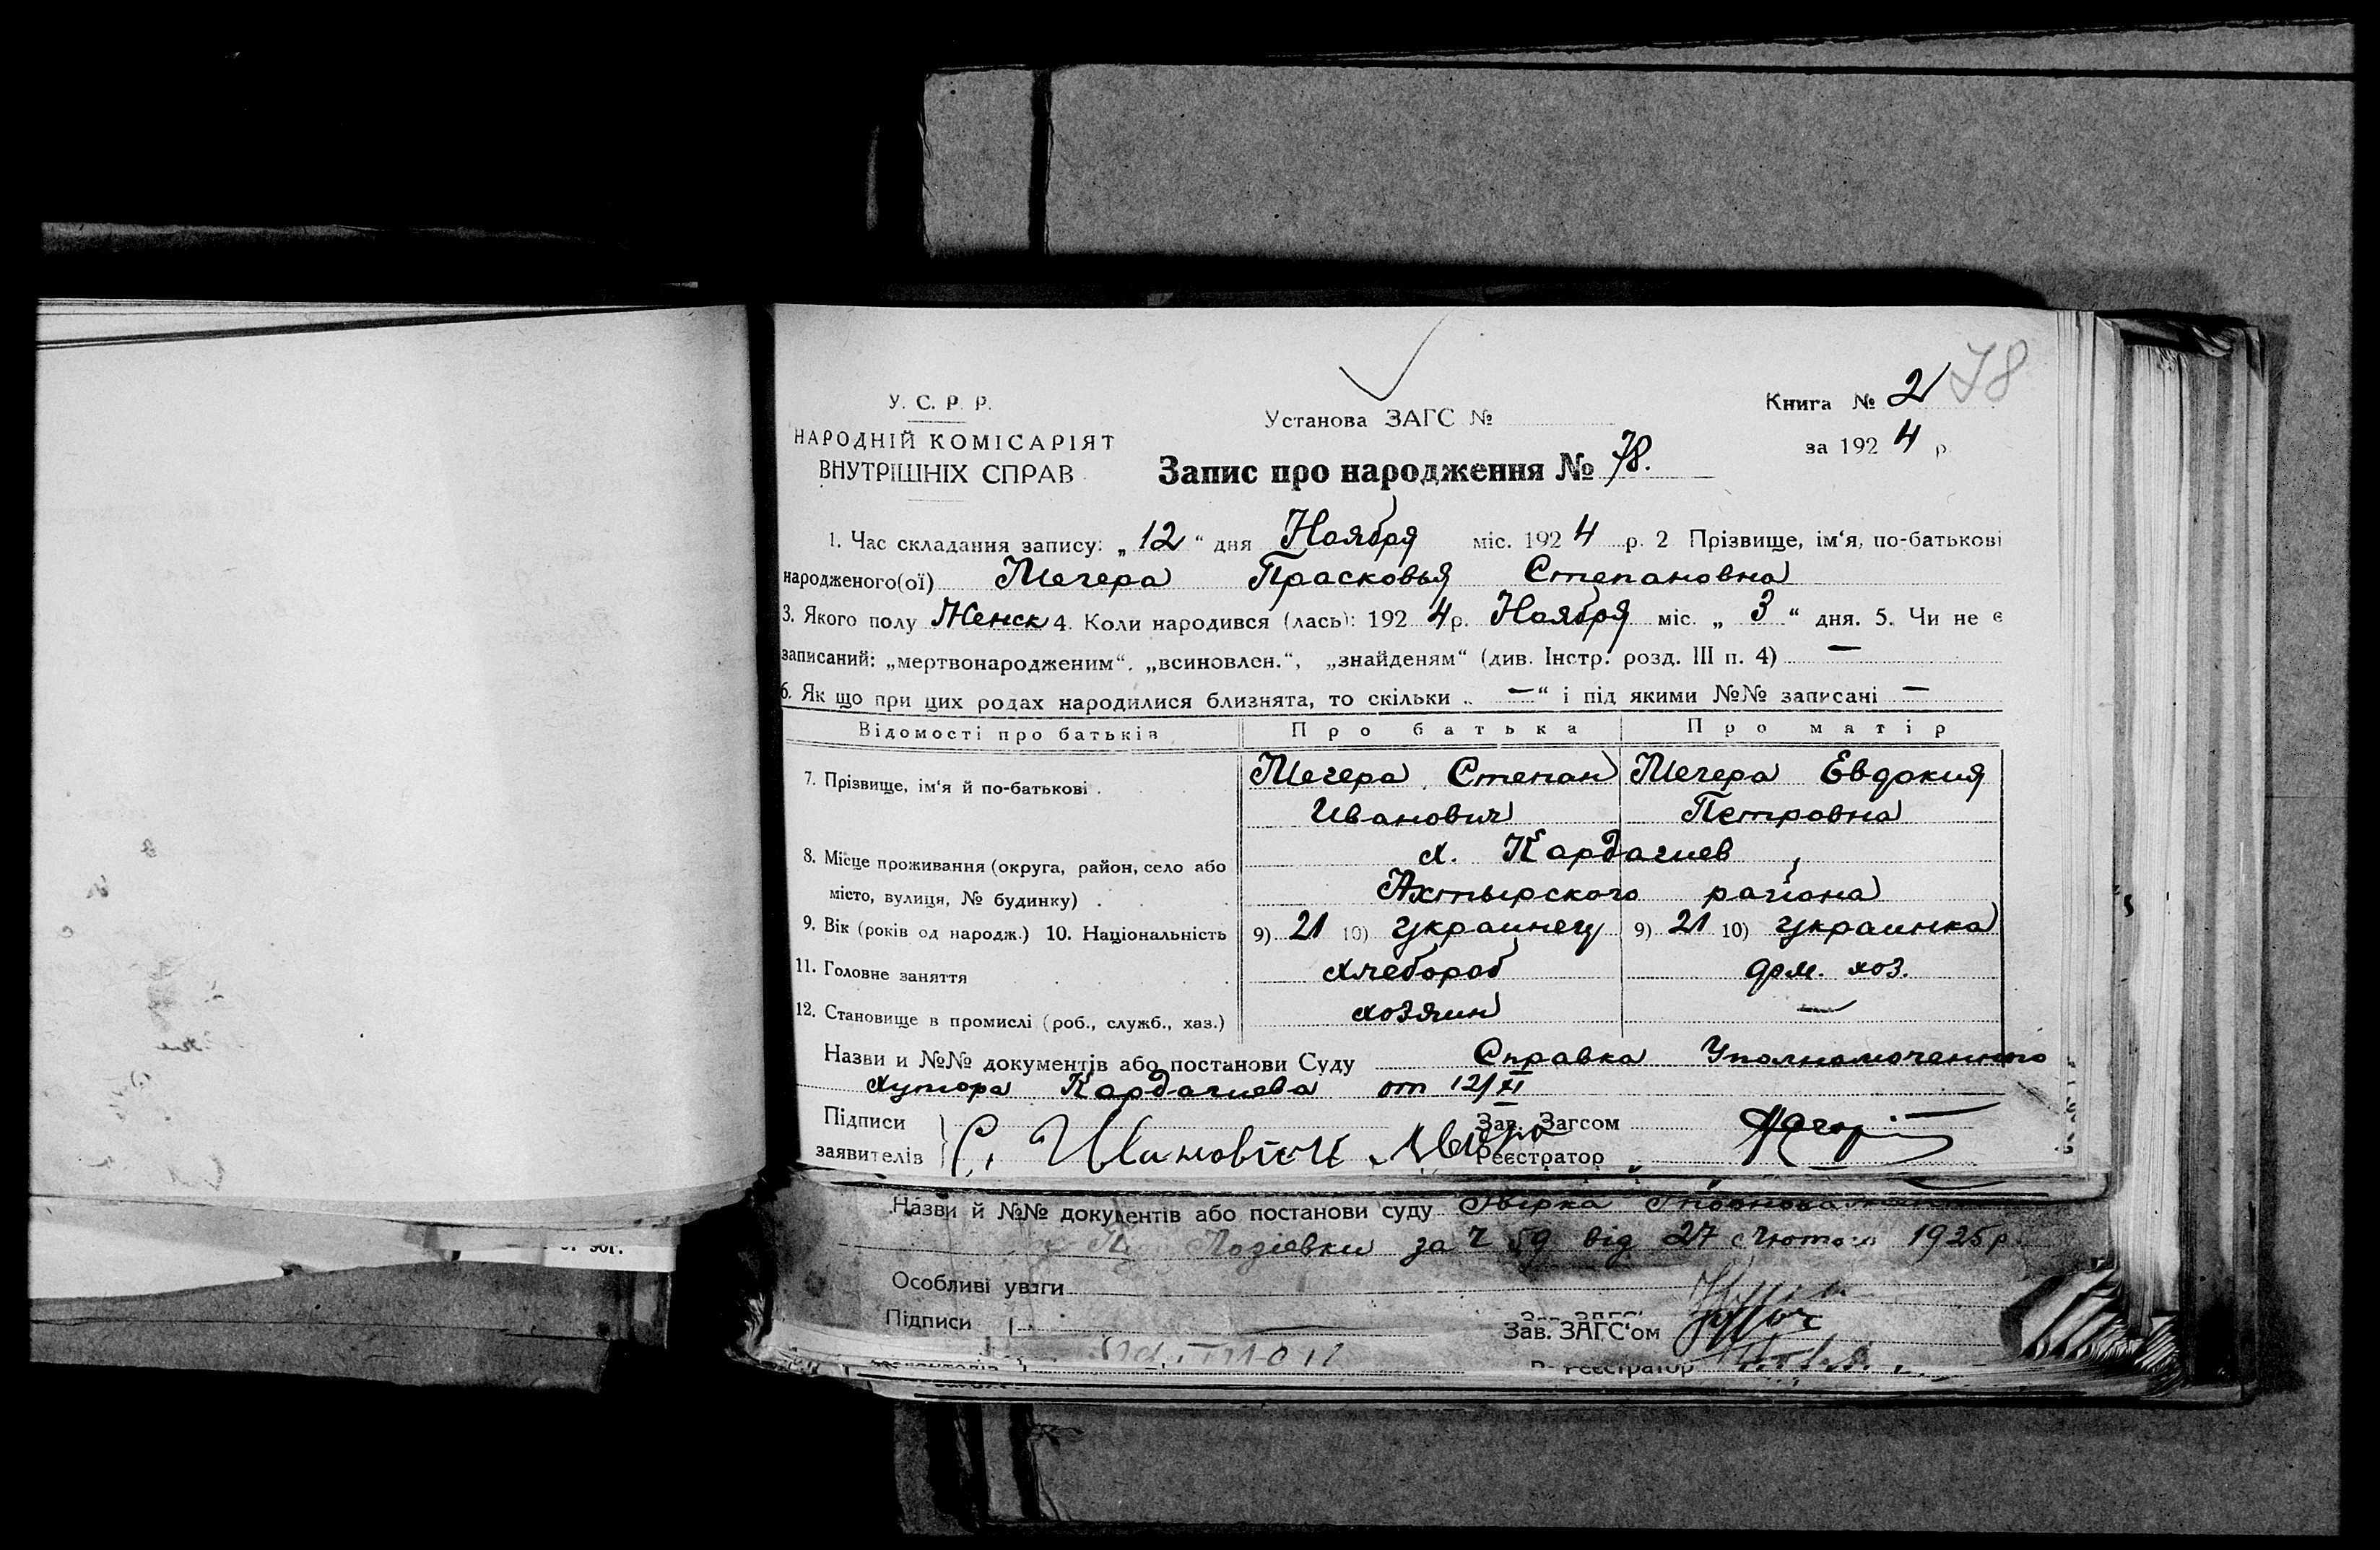 78
У. С. Р. Р.
НАРОДНІЙ КОМІСАРІЯТ
ВНУТРІШНІХ СПРАВ
Установа ЗАГС №
Запис про народження № 78.
Книга № 2
за 1924 р.
1. Час складання запису: „12“ дня Ноября міс. 1924 р. 2 Прізвище, ім‘я, по-батькові
народженого(ої) Мегера Прасковья Степановна
3. Якого полу Женск 4. Коли народився (лась): 1924 р. Ноября міс. „3“ дня. 5. Чи не є
записаний: „мертвонародженим“, „всиновлен.“, „знайденям“ (див. Інстр. розд. III п. 4) —
6. Як що при цих родах народилися близнята, то скільки „—“ і під якими №№ записані —
Відомості про батьків Про батька Про матір
7. Прізвище, ім‘я й по-батькові . Мегера Степан Мегера Евдокия
Иванович Петровна
8. Місце проживання (округа, район, село або х. Кардашев,
місто, вулиця, № будинку) . Ахтырского района
9. Вік (років од народж.) 10. Національність 9) 21 10) украинец 9) 21 10) украинка
11. Головне заняття хлебороб дом. хоз.
12. Становище в промислі (роб., служб., хаз.) хозяин —
Назви и №№ документів або постанови Суду Справка Уполномоченного
хутора от 12/XI
Підписи Зав. Загсом
заявителів С. Иванович Реєстратор
Назви й №№ документів або постанови суду
Лозіевки за 59 від 27 Лютого 1925 р.
Особливі уваги
Підписи Зав. ЗАГС‘ом
Реєстратор